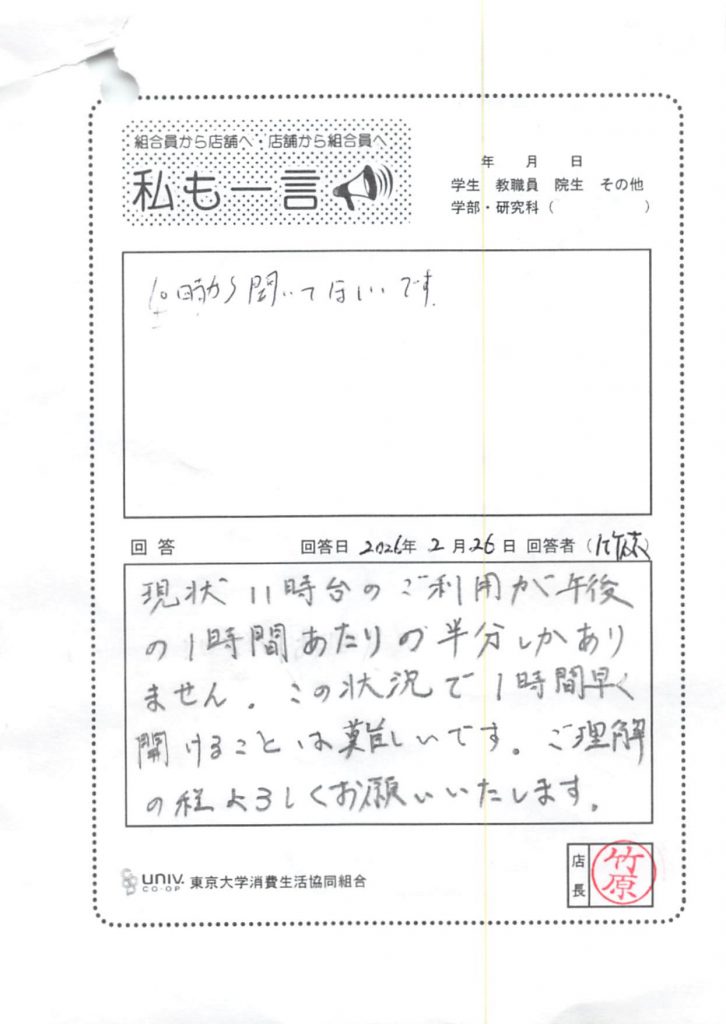 組合員から店舗へ・店舗から組合員へ
私も一言
年 月 日
学生 教職員 院生 その他
学部・研究科（ ）
10時から開いてほしいです。
回答 回答日 2026年 2月26日 回答者（竹原）
現状 11時台のご利用が午後
の1時間あたりの半分しかあり
ません。この状況で1時間早く
開けることは難しいです。ご理解
の程よろしくお願いいたします。
UNIV. CO-OP 東京大学消費生活協同組合
店長 竹原